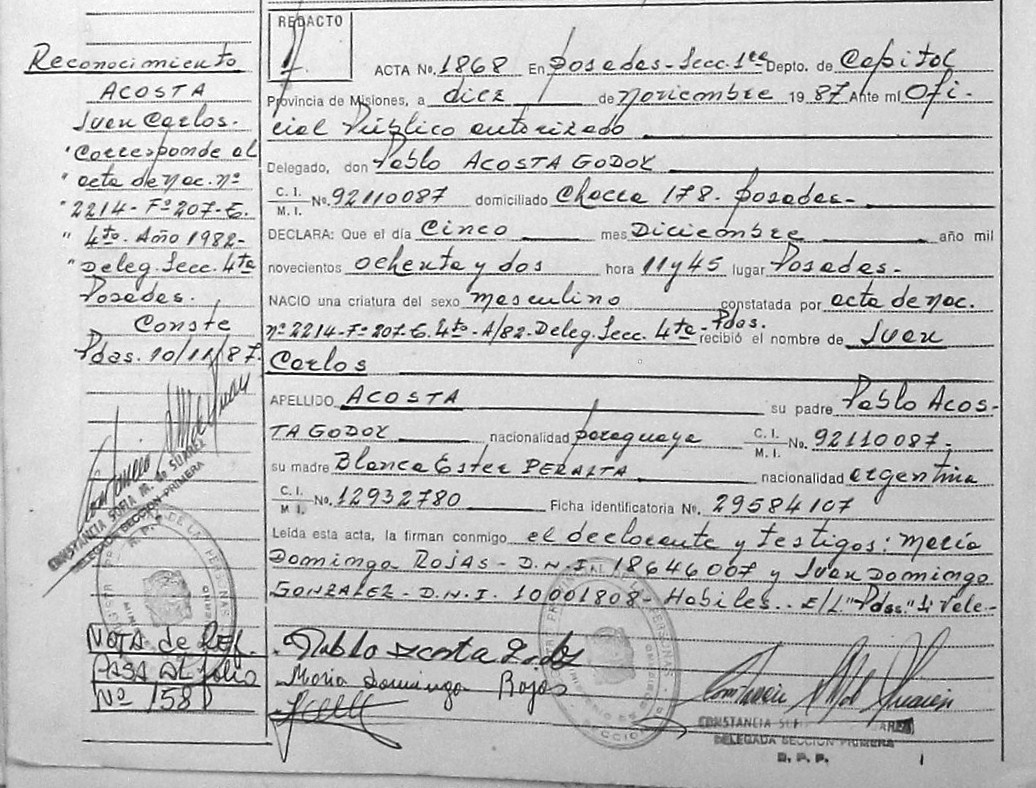 Reconocimiento
ACOSTA
Juan Carlos.
"Corresponde al
" acta de nac. nº
"2214- Fº 207- E.
" 4to. Año 1982-
" Deleg. Secc. 4ta
Posadas.
Conste
Pdas. 10/11/87.
CONSTANCIA SOFIA M. de SUAREZ
DELEGADA SECCION PRIMERA
R. P. P.
NOTA de REF.
PASA AL folio
Nº 158
REDACTO
ACTA No. 1868 En Posadas- Secc. 1ra Depto. de Capital
Provincia de Misiones, a diez de noviembre 19 87 Ante mi Ofi-
cial Público autorizado
Delegado, don Pablo ACOSTA GODOY
C. I.
M. I. No. 92110087 domiciliado Chacra 178- Posadas-
DECLARA: Que el día Cinco mes Diciembre año mil
novecientos ochenta y dos hora 11 y 45 lugar Posadas-
NACIO una criatura del sexo masculino constatada por acta de nac.
nº 2214- Fº 207- E. 4to- A/82- Deleg. Secc. 4ta- Pdas. recibió el nombre de Juan
Carlos
APELLIDO ACOSTA su padre Pablo ACOS-
TA GODOY nacionalidad paraguaya C. I.
M. I. No. 92110087-
su madre Blanca Ester PERALTA nacionalidad argentina
C. I.
M. I. No. 12932780 Ficha identificatoria No. 29584107
Leída esta acta, la firman conmigo el declarante y testigos: María
Dominga ROJAS- D.N.I. 18646007 y Juan Domingo
GONZALEZ- D.N.I. 10001808- Habiles.. E/L "Pdas" Si Vale-
Pablo acosta Godoy
Maria Dominga Rojas
CONSTANCIA SUAREZ
DELEGADA SECCION PRIMERA
R. P. P.